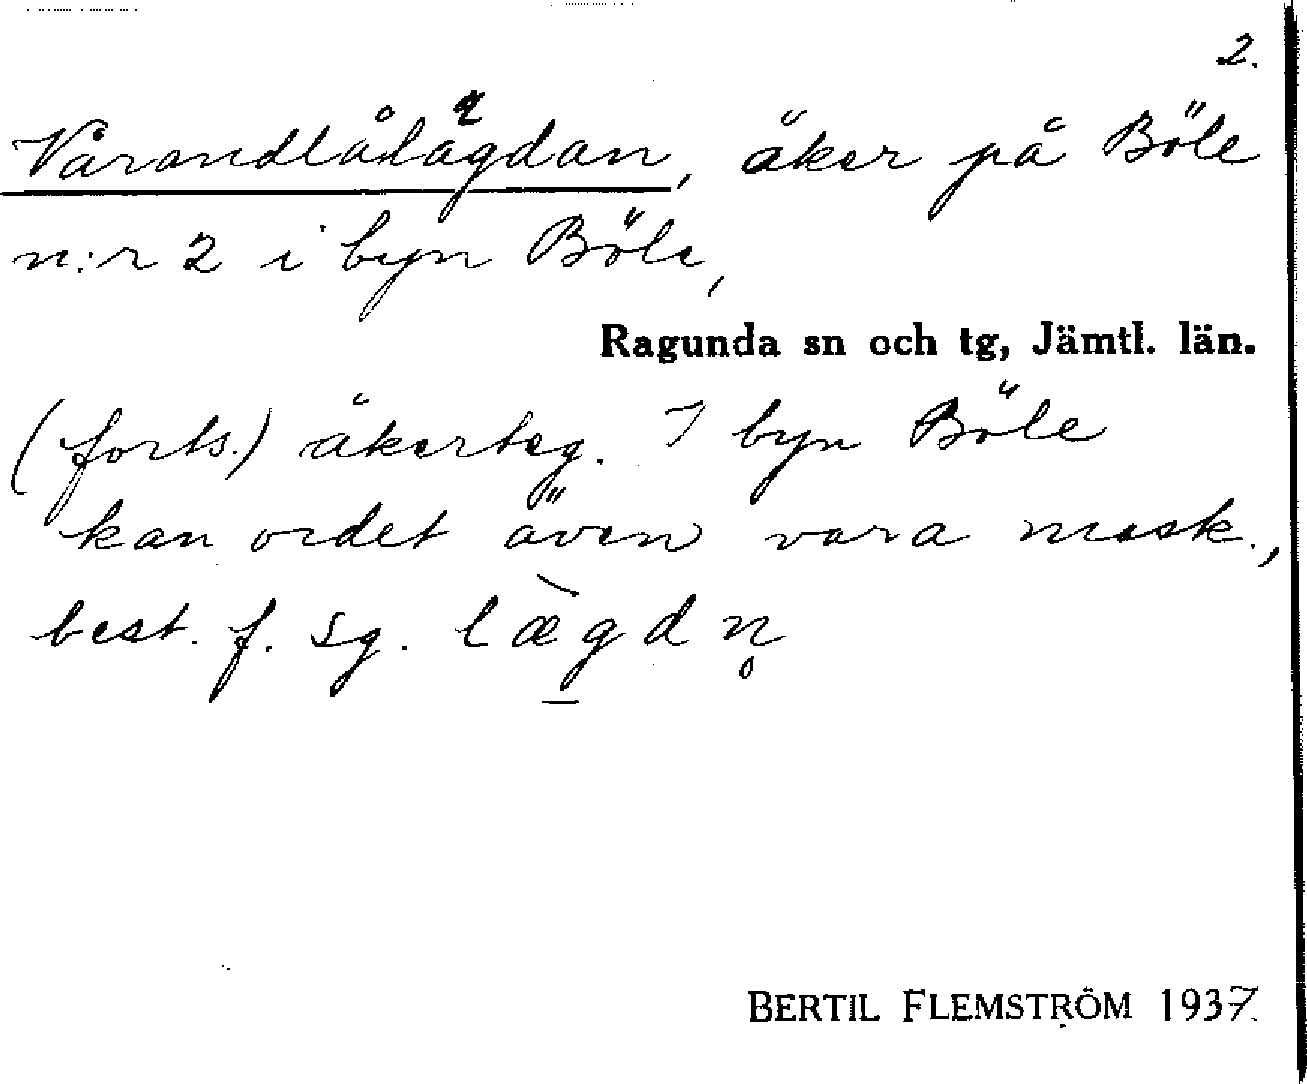 2.
Varandlålägdan, åker på Böle
n:r 2 i byn Böle,
Ragunda sn och tg, Jämtl. län.
(forts.) åkerteg. I byn Böle
kan ordet även vara mask.,
best. f. sg. læ̱̀gdn̥
BERTIL FLEMSTRÖM 1937.